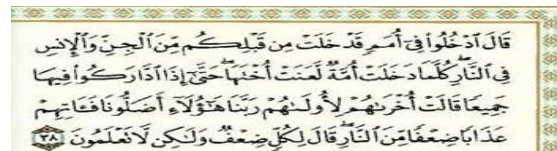 قَالَ ٱدْخُلُوا۟ فِىٓ أُمَمٍ قَدْ خَلَتْ مِن قَبْلِكُم مِّنَ ٱلْجِنِّ وَٱلْإِنسِ
فِى ٱلنَّارِ ۖ كُلَّمَا دَخَلَتْ أُمَّةٌ لَّعَنَتْ أُخْتَهَا ۖ حَتَّىٰٓ إِذَا ٱدَّارَكُوا۟ فِيهَا
جَمِيعًا قَالَتْ أُخْرَىٰهُمْ لِأُولَىٰهُمْ رَبَّنَا هَـٰٓؤُلَآءِ أَضَلُّونَا فَـَٔاتِهِمْ
عَذَابًا ضِعْفًا مِّنَ ٱلنَّارِ ۖ قَالَ لِكُلٍّ ضِعْفٌ وَلَـٰكِن لَّا تَعْلَمُونَ ٣٨